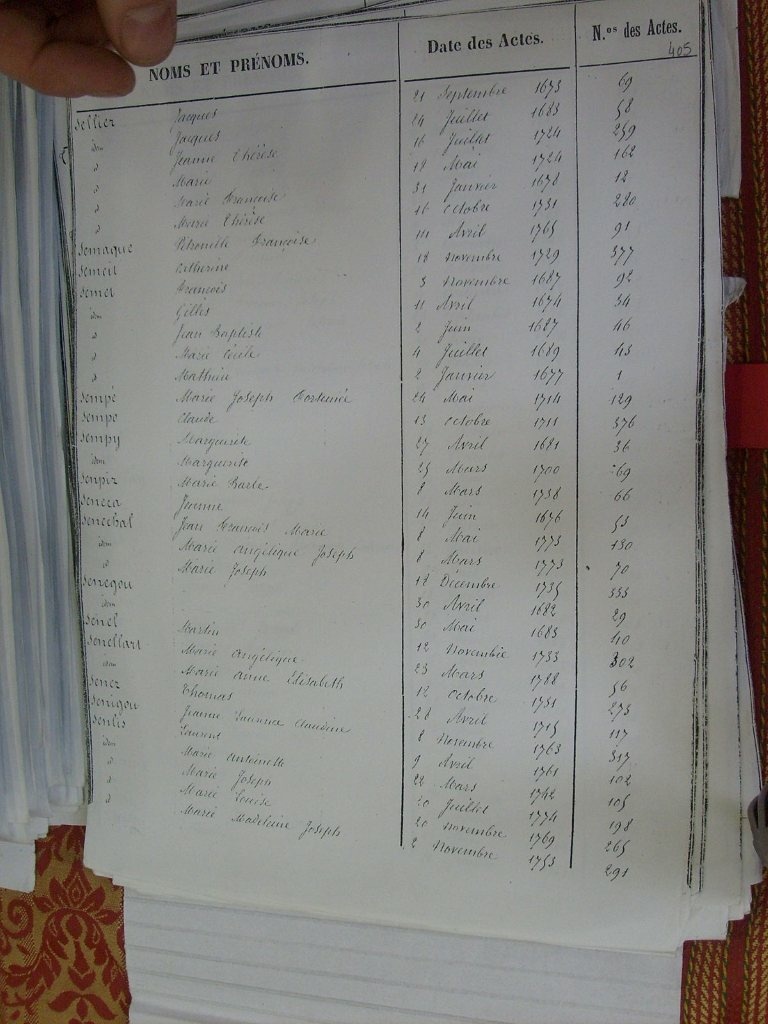 NOMS ET PRÉNOMS. Date des Actes. N.os des Actes.
405
Sellier Jacques 21 Septembre 1673 69
idm Jacques 24 Juillet 1683 58
d Jeanne Thérèse 16 Juillet 1724 259
d Marie 18 Mai 1724 162
d Marie Françoise 31 Janvier 1678 12
d Marie Thérèse 16 Octobre 1731 280
Semaque Pétronille Françoise Avril 1765 91
Semeit Catherine 18 Novembre 1729 377
Semet François 3 Novembre 1687 92
idm Gilles 11 Avril 1674 34
d Jean Baptiste 2 Juin 1687 46
d Marie Cécile 4 Juillet 1689 43
d Mathieu 2 Janvier 1677 1
Sempé Marie Joseph Fortunée 24 Mai 1714 129
Sempo Claude 13 Octobre 1711 376
Sempy Marguerite 27 Avril 1681 36
idm Marguerite 25 Mars 1700 69
Senpiz Marie Barbe 8 Mars 1738 66
Seneca Jeanne 14 Juin 1676 53
Senechal Jean François Marie 8 Mai 1773 130
idm Marie Angélique Joseph 8 Mars 1773 70
d Marie Joseph 12 Décembre 1735 333
Senegou 30 Avril 1682 29
idm 30 Mai 1683 40
Senel Martin 12 Novembre 1733 302
Senellart Marie Angélique 23 Mars 1788 56
idm Marie Anne Elisabeth 12 Octobre 1751 273
Senez Thomas 28 Avril 1715 117
Senigou Jeanne Laurence Claudine 8 Novembre 1763 317
Senlis Laurent 9 Avril 1761 102
idm Marie Antoinette 22 Mars 1742 105
d Marie Joseph 20 Juillet 1774 198
d Marie Louise 20 Novembre 1769 265
d Marie Madeleine Joseph 2 Novembre 1753 291